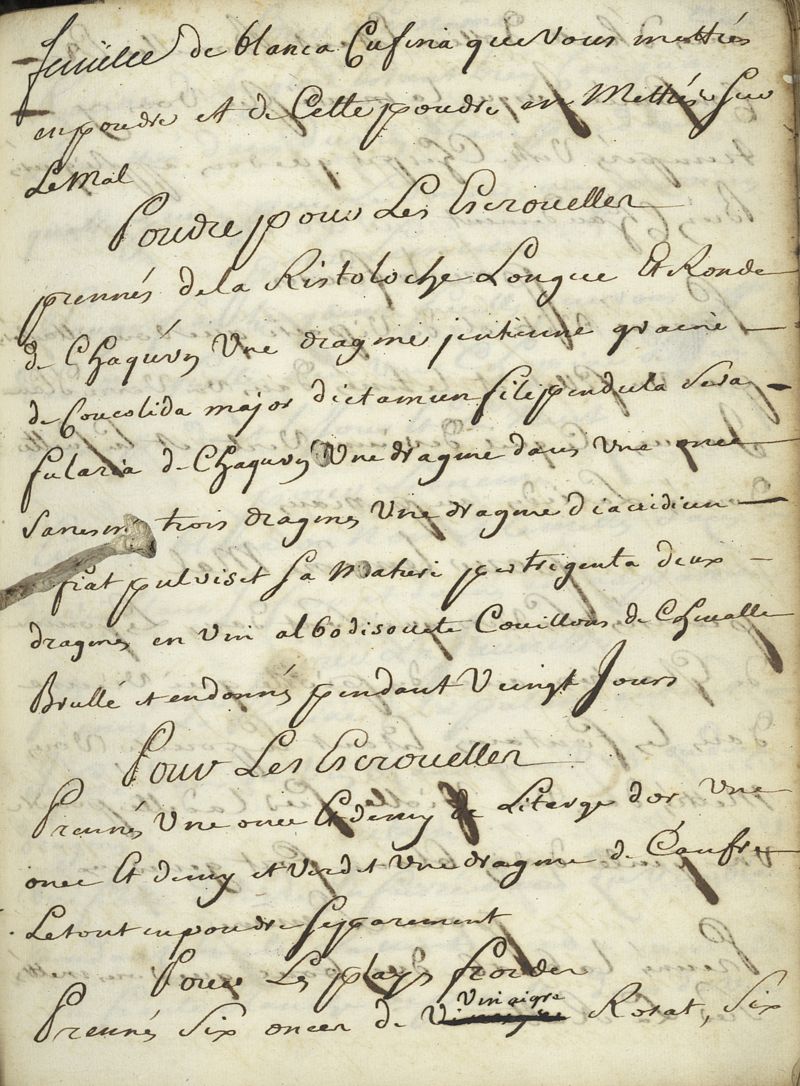 feuille de blanca Cusina que vous mettrés
en poudre et de Cette poudre en Mettrés sur
Le Mal
Poudre pour Les Escrouelles
prennés de la Ristoloche Longue Et Ronde
de Chaqu'un Une dragme jentienne graine
de Concolida major dictamun filipendula Scra
fularia de Chaqu'un Une dragme dans Une once
trois dragmes Une dragme
fiat pulvis et sa Maturi per trigenta deux
dragmes en vin albo Couillons de Chevalle
Brullé et en donnés pendant Veingt Jours
Pour Les Escrouelles
Prennés Une once Et demy de Literge d'or Une
once Et demy et Verdet Une dragme de Canfre
Le tout en poudre sepparement
Pour Les plays froides
Prennés Six onces de Vinaigre Rosat, Six